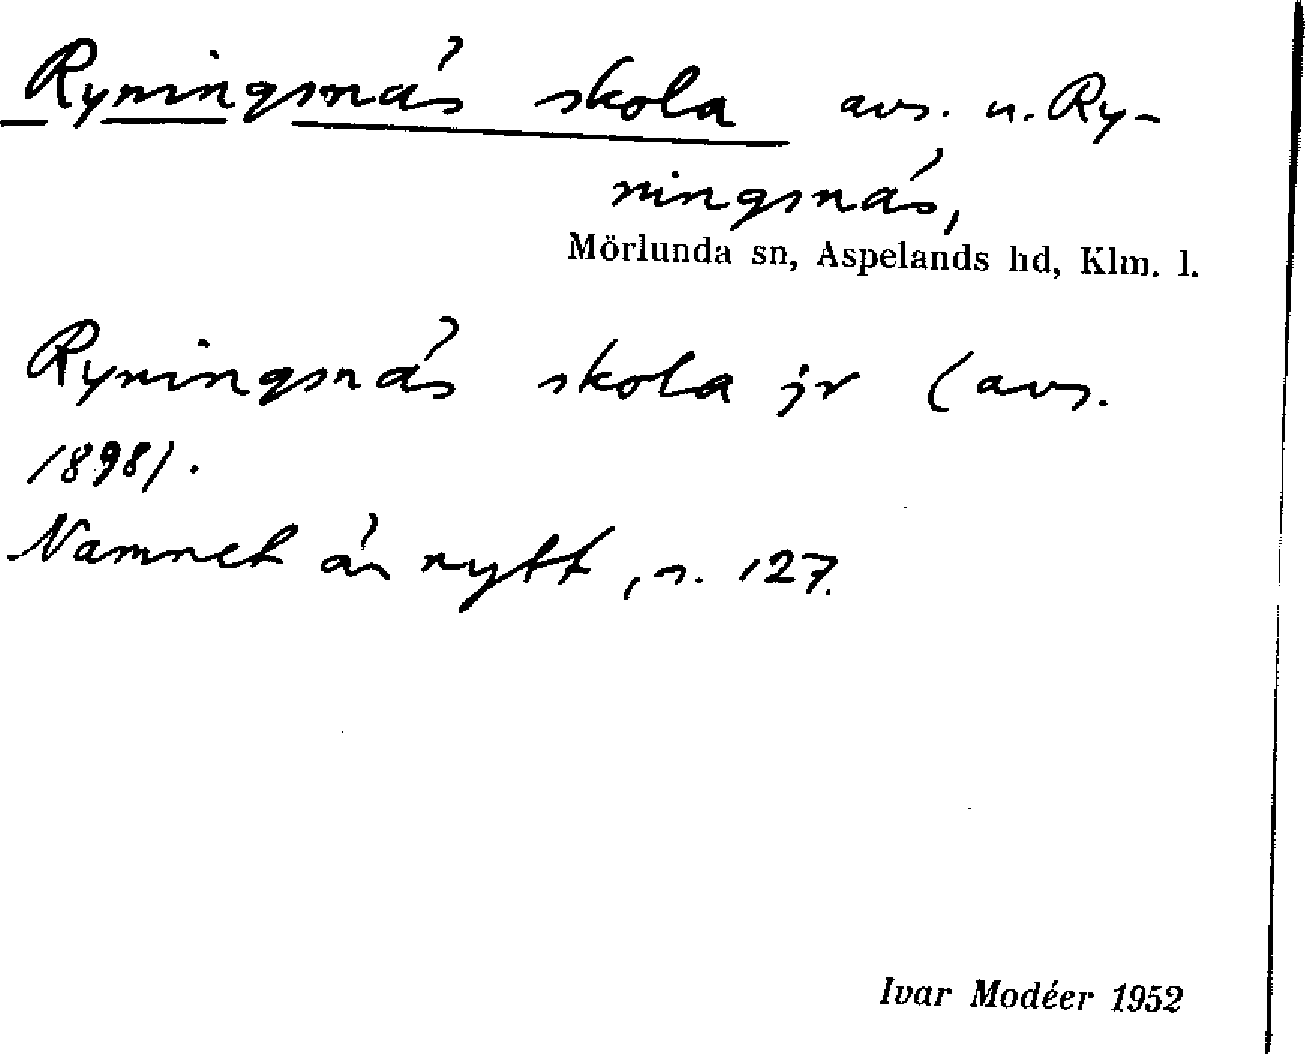 Ryningsnäs skola avs. u. Ry-
ningsnäs,
Mörlunda sn, Aspelands hd, Klm. l.
Ryningsnäs skola jr (avs.
1898).
Namnet är nytt, s. 127.
Ivar Modéer 1952